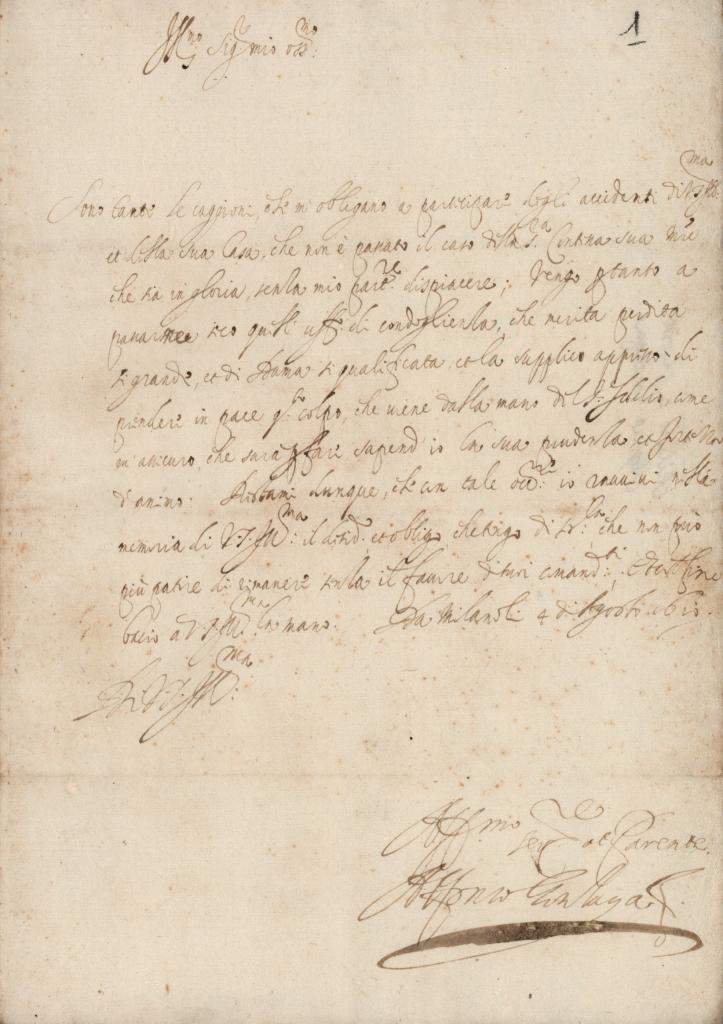 1
Ill.mo Sig.re mio oss.mo
Sono tante le caggioni, che m'obligano a participare degli accidenti di V.S. Ill.ma
et della sua Casa, che non è passato il caso della S.ra Contessa sua M.re
che sia in gloria, senza mio par.re dispiacere; Vengo per tanto a
passarne seco questi uff.i di condoglienza, che merita perdita
si grande, et di Dama si qualificata, et la supplico appresso di
prendere in pace q.to colpo, che viene dalla mano del S.re Iddio, come
m'assicuro, che sarà per fare sapend'io la sua prudenza, et fortezza
d'animo. Restami dunque, che con tale occ.ne io ravvivi nella
memoria di V.S. Ill.ma il desid.o et obligo che tengo di ser.la che non può
più patire di rimanere senza il favore de suoi comand.ti, et per fine
bacio a V.S. Ill.ma la mano. Da Milano li 4 di Agosto
Di V.S. Ill.ma
Aff.mo ser.re et Parente
Alfonso Gonzaga